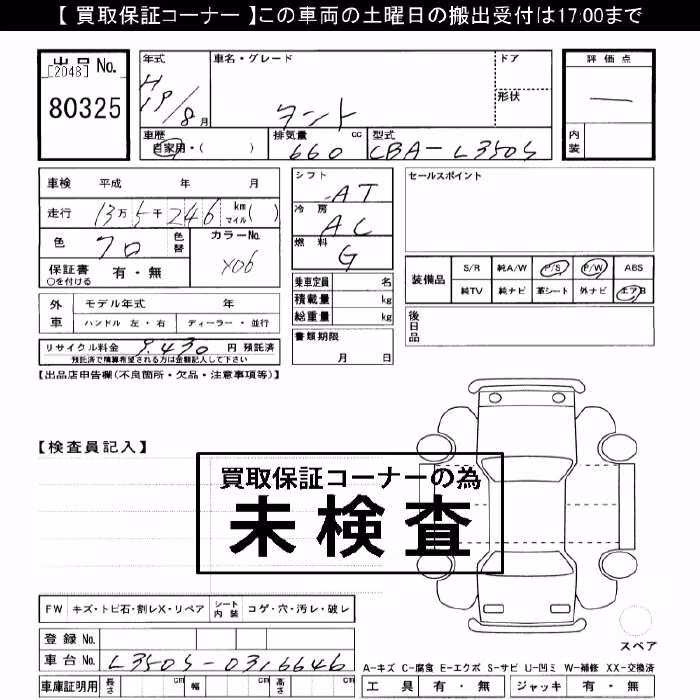 【 買取保証コーナー 】この車両の土曜日の搬出受付は17:00まで
出品 No.
[2048]
80325
年式
H19/8月
車名・グレード
タント
ドア
形状
評価点
—
内装
車歴
自家用・( )
排気量 cc
660
型式
CBA-L350S
車検 平成 年 月
走行 13万5千246 km マイル( )
色 クロ 色替
カラーNo.
X06
保証書 有・無
○を付ける
シフト AT
冷房 AC
燃料 G
セールスポイント
乗車定員 名
積載量 kg
総重量 kg
装備品
S/R 純A/W P/S P/W ABS
純TV 純ナビ 革シート 外ナビ エアB
外車
モデル年式 年
ハンドル 左・右 ディーラー・並行
書類期限
月 日
後日品
リサイクル料金 9,430 円 預託済
預託済で精算希望される方は金額記入して下さい
【出品店申告欄(不良箇所・欠品・注意事項等)】
【検査員記入】
買取保証コーナーの為
未検査
FW キズ・トビ石・割レX・リペア
シート内装 コゲ・穴・汚レ・破レ
登録 No.
車台 No. L350S-0316646
車庫証明用 長さ cm 幅 cm 高さ cm
スペア
A-キズ C-腐食 E-エクボ S-サビ U-凹ミ W-補修 XX-交換済
工具 有・無 ジャッキ 有・無